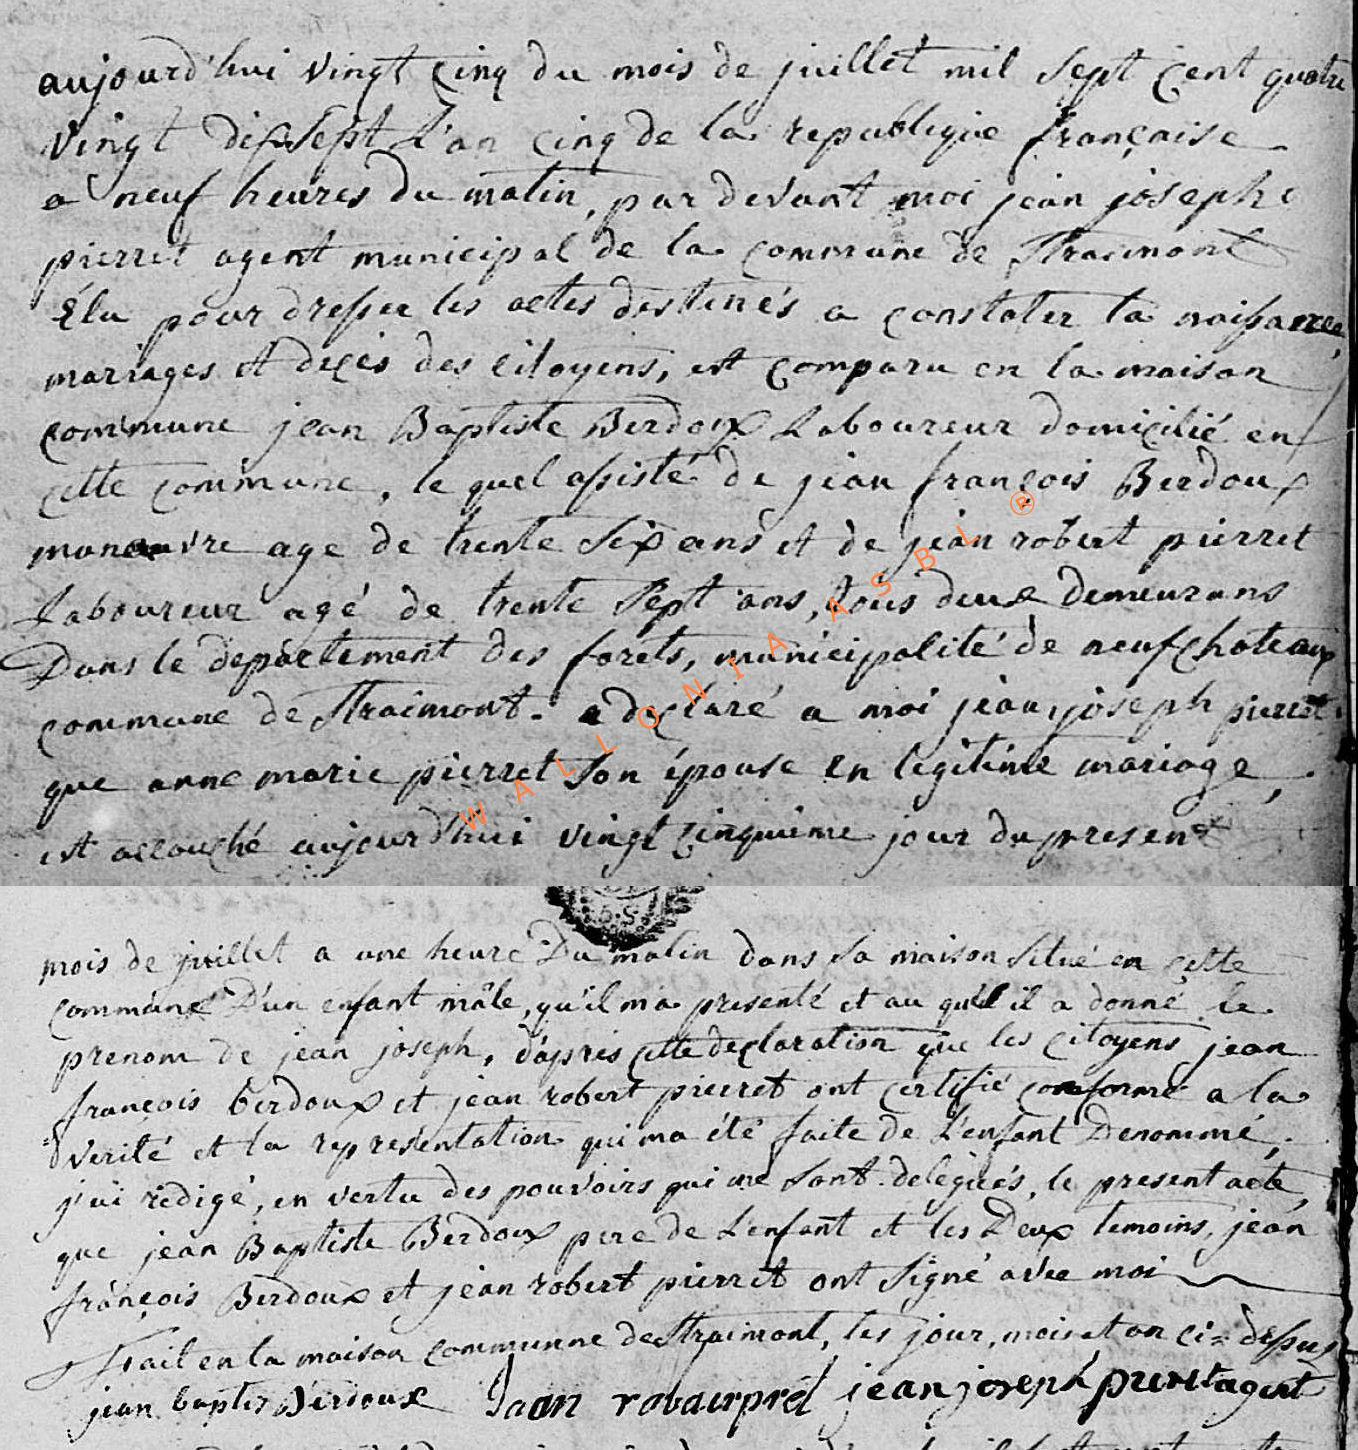 aujourd'hui vingt cinq du mois de juillet mil sept cent quatre
vingt dix sept L'an cinq de la republique française
a neuf heures du matin, par devant moi jean joseph
pierret agent municipal de la commune de Straimont
Élu pour dresser les actes destinés a constater la naissance,
mariages et decès des citoyens, est comparu en la maison
commune jean Baptiste Berdoux Laboureur domicilié en
cette commune, le quel assisté de jean françois Berdoux
manœuvre age de trente six ans et de jean robert pierret
Laboureur agé de trente sept ans, tous deux demeurans
Dans le departement des forets, municipalité de neufchateaux
commune de Straimont. a declaré a moi jean joseph pierret
que anne marie pierret son épouse en legitime mariage,
est accouché aujourd'hui vingt cinquieme jour du present
WALLONIA ASBL ®
mois de juillet a une heure Du matin dans sa maison situé en cette
commune D'un enfant mâle, qu'il ma presenté et au quel il a donné le
prenom de jean joseph, d'aprés cette declaration que les citoyens jean
françois berdoux et jean robert pierret ont certifié conforme a la
verité et la representation qui ma été faite de L'enfant Denommé,
j'ai rédigé, en vertu des pouvoirs qui me sont delegués, le present acte,
que jean Baptiste Berdoux pere de L'enfant et les Deux temoins, jean
françois Berdoux et jean robert pierret ont signé avec moi
Fait en la maison communne de Straimont, les jour, mois et an ci-dessus
jean baptis Berdoux Jean jean joseph pierret agent